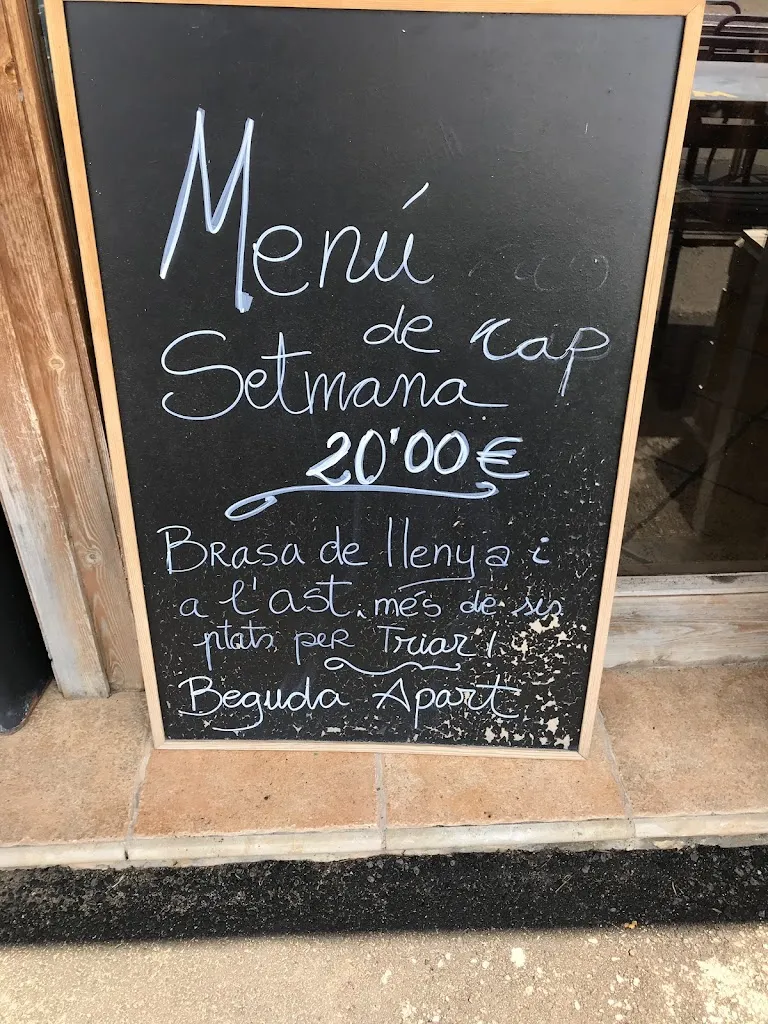 Menú
de cap
Setmana
20'00€
Brasa de llenya i
a l'ast. més de sis
plats per Triar!
Beguda Apart